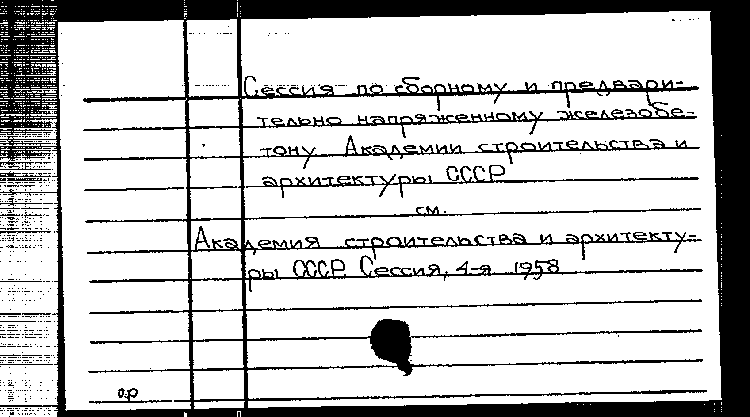 Сессия по сборному и предвари-
тельно напряженному железобе-
тону Академии строительства и
архитектуры СССР
см.
Академия строительства и архитекту-
ры СССР. Сессия, 4-я 1958
ор